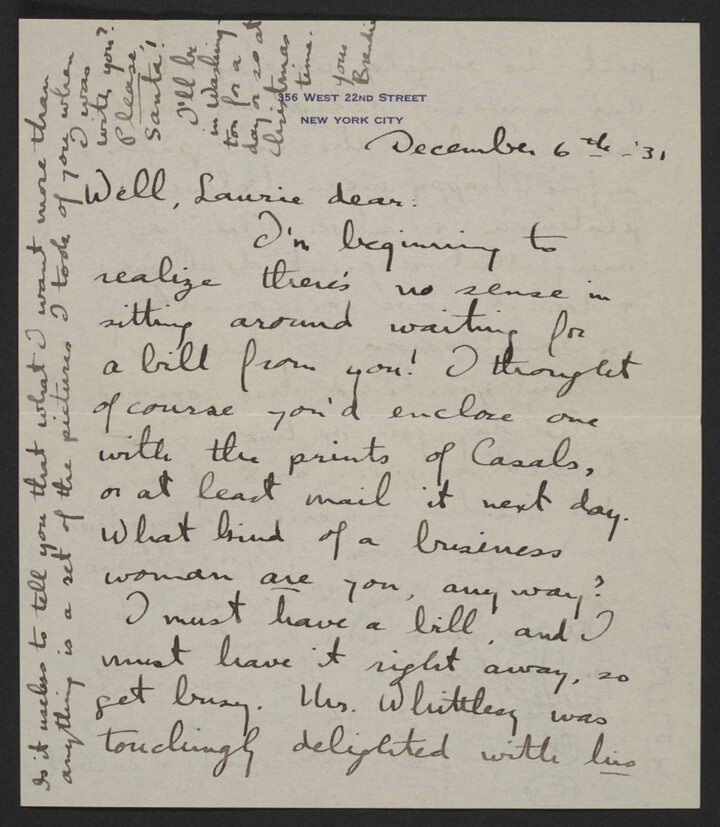 356 West 22nd Street
New York City
December 6th - '31
Well, Laurie dear:
I'm beginning to
realize there's no sense in
sitting around waiting for
a bill from you! I thought
of course you'd enclose one
with the prints of Casals,
or at least mail it next day.
What kind of a business
woman are you, anyway?
I must have a bill, and I
must have it right away, so
get busy. Mrs. Whittlesey was
touchingly delighted with his
Is it useless to tell you that what I want more than
anything is a set of the pictures I took of you when
I was
with you?
Please,
Santa!
I'll be
in Washing-
ton for a
day or so at
Christmas
time.
Yours